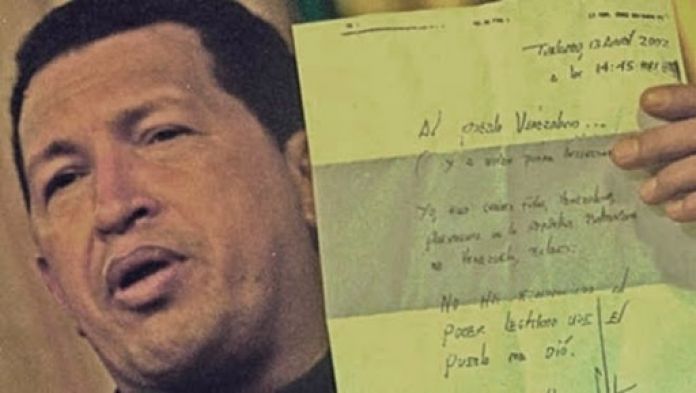 Turiamo, 13 Abril 2002
a las 14:45 hrs
Al pueblo Venezolano...
(y a quien pueda interesar
Yo, Chávez Frías, Venezolano,
Presidente de la República Bolivariana
de Venezuela, declaro:
No he renunciado al
poder legítimo que el
pueblo me dió.